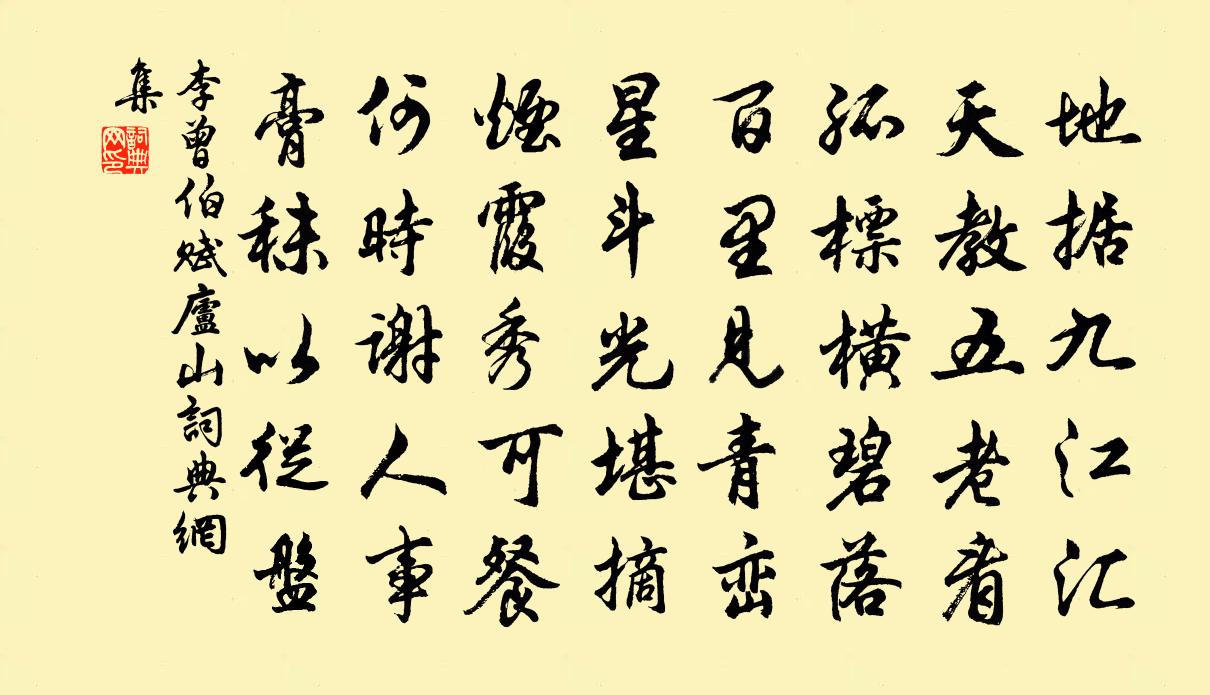 地据九江汇
天教五老看
孤標橫碧落
百里見青峦
星斗光堪摘
煙霞秀可餐
何時谢人事
膏秣以從盤
李曾伯赋廬山詞典網
集
詞典
网印